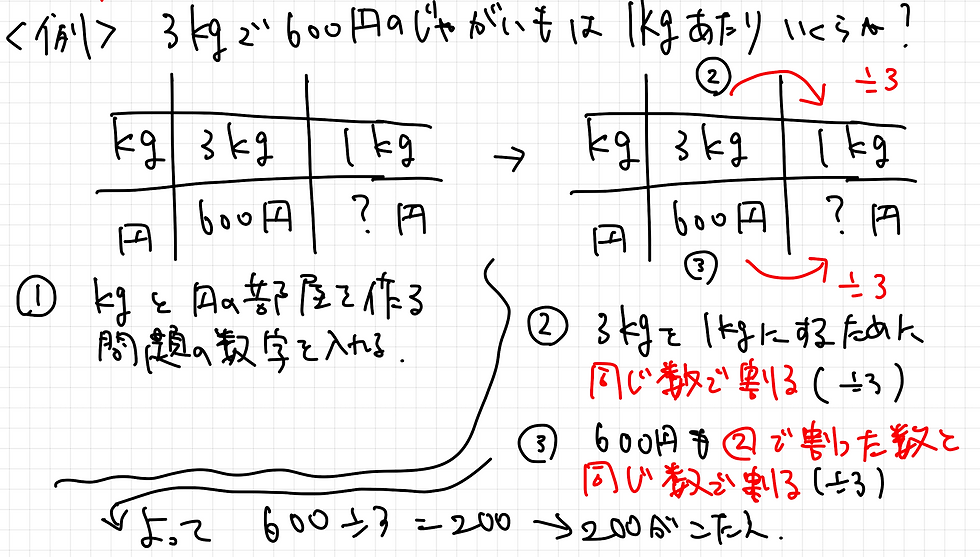 <例> 3kgで600円のじゃがいもは1kgあたりいくらか?
kg 3kg 1kg
円 600円 ?円
→
② ÷3
kg 3kg 1kg
円 600円 ?円
③ ÷3
① kgと円の部屋を作る
問題の数字を入れる.
② 3kgを1kgにするために
同じ数で割る(÷3)
③ 600円も②で割った数と
同じ数で割る(÷3)
よって 600÷3=200 →200がこたえ.